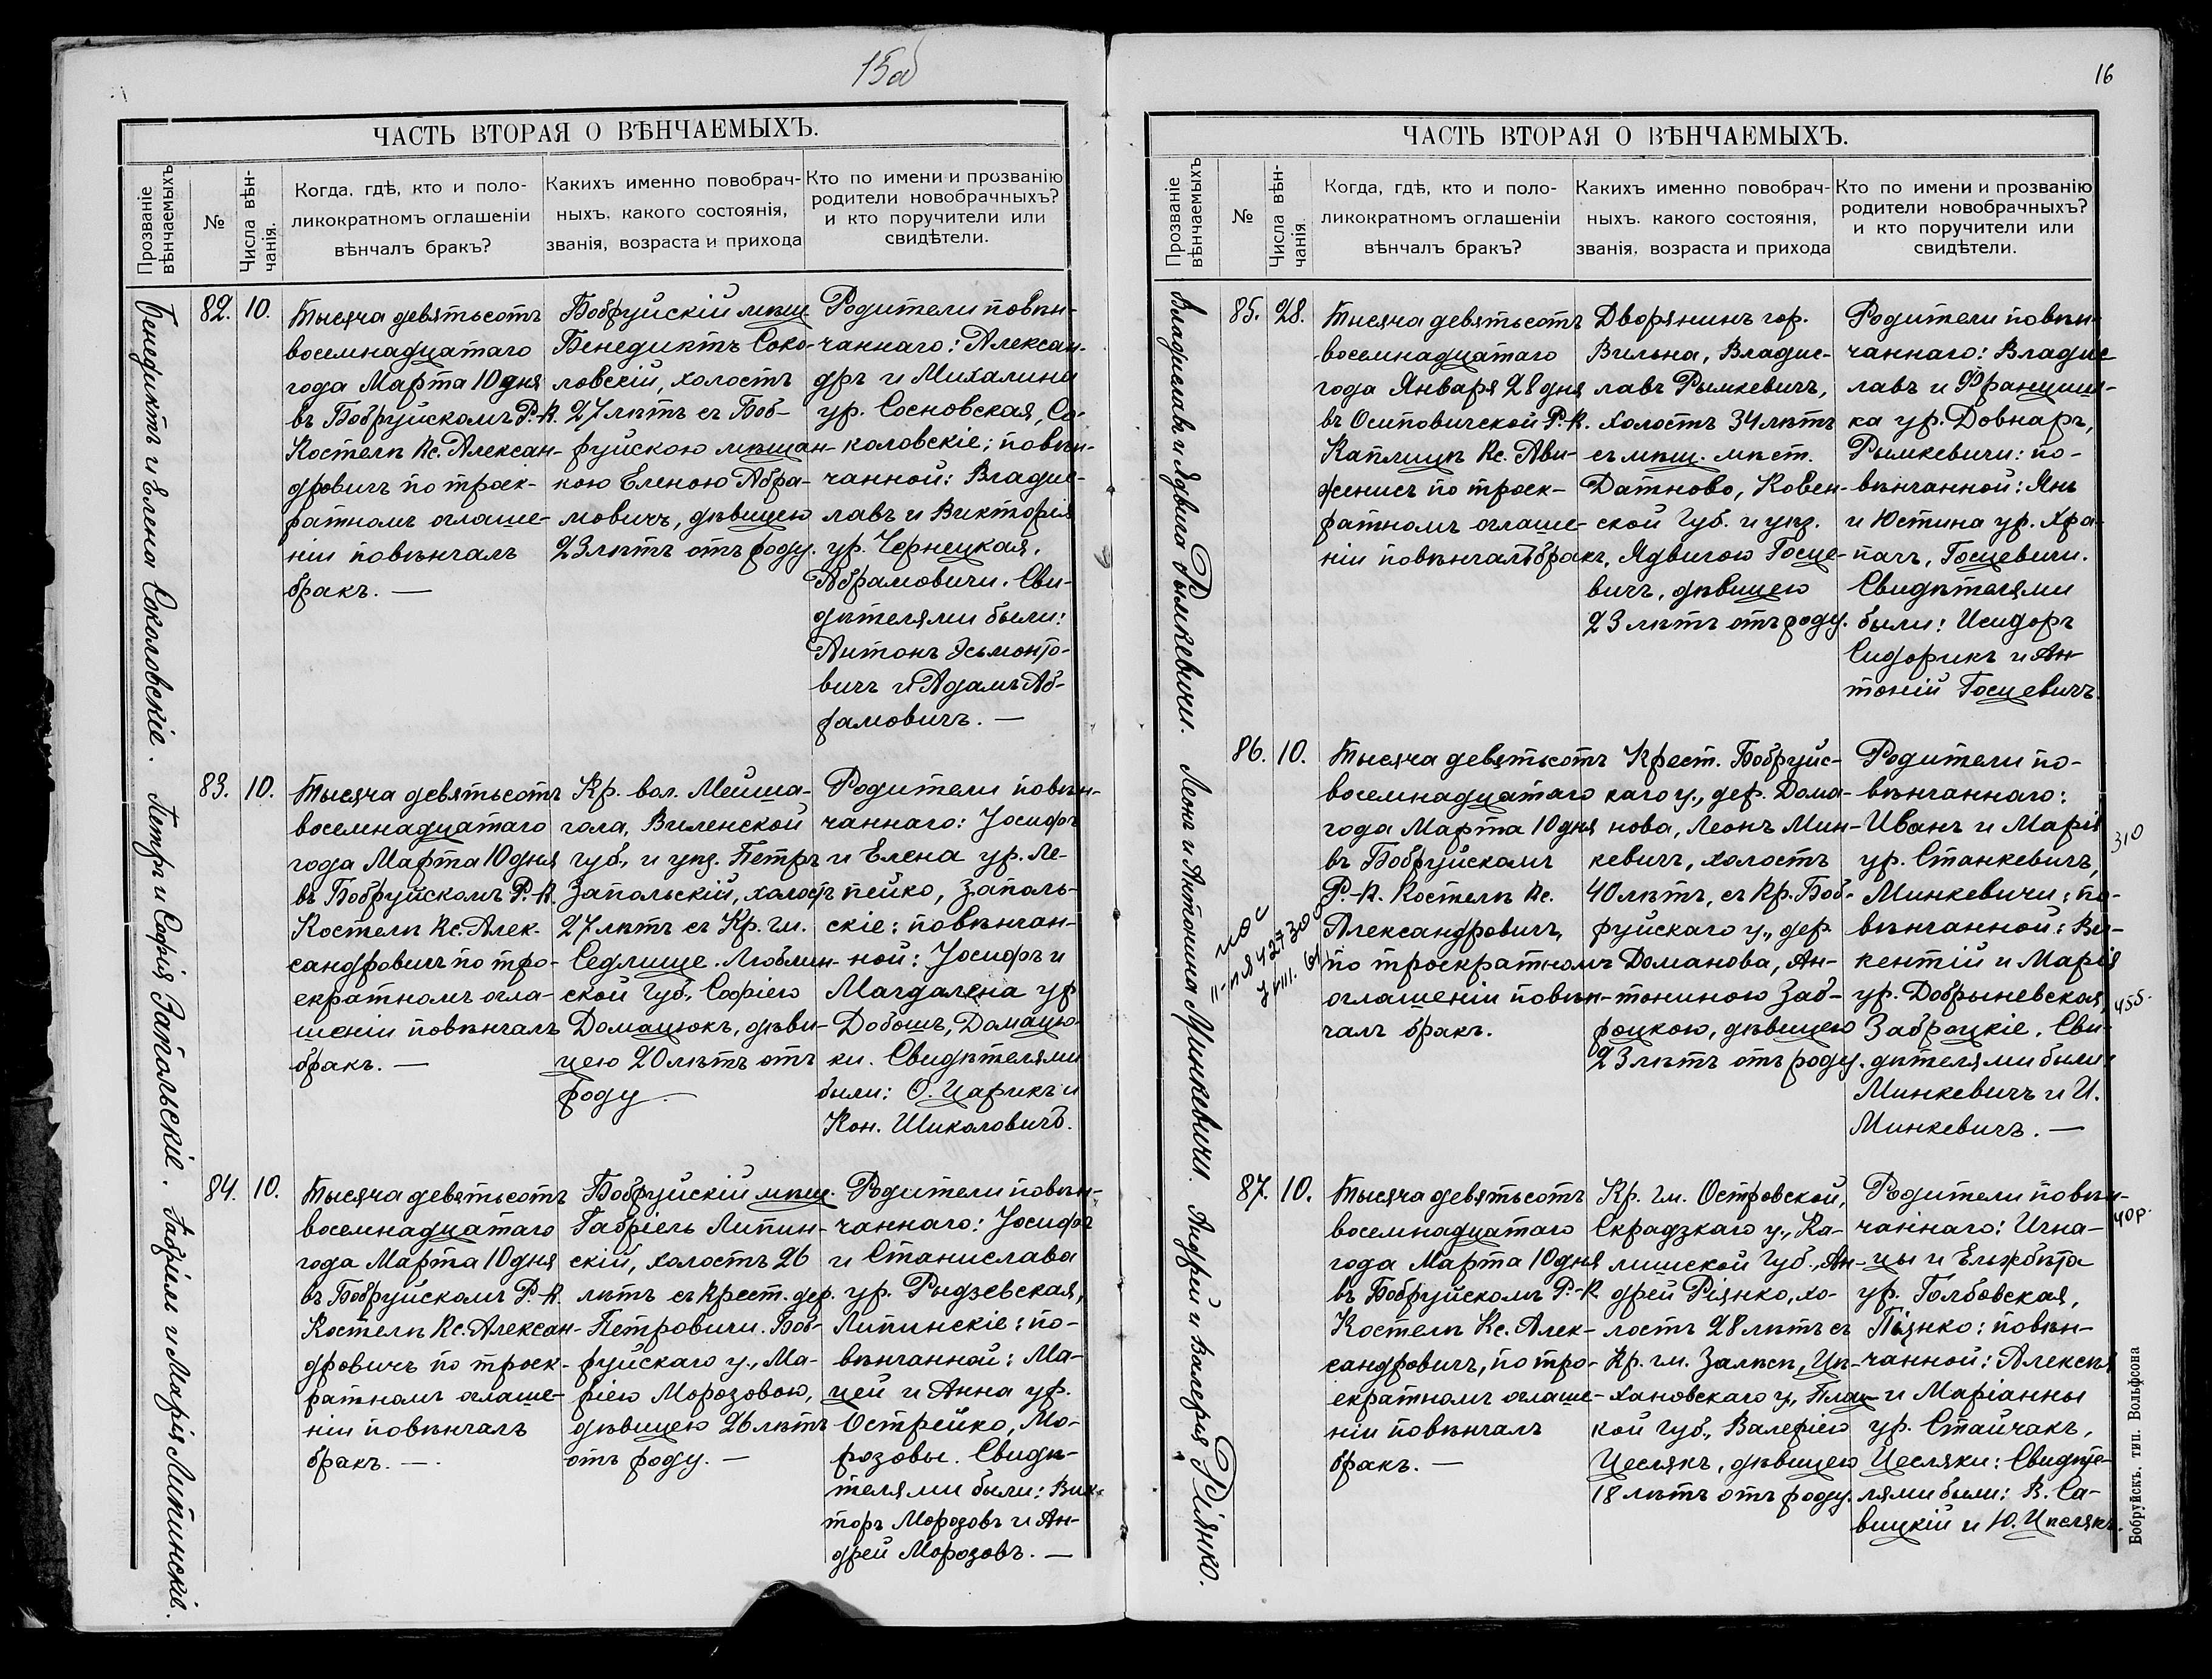 15об
ЧАСТЬ ВТОРАЯ О ВѢНЧАЕМЫХЪ.
Прозваніе
вѣнчаемыхъ
№
Числа вѣн-
чанія.
Когда, гдѣ, кто и поло-
ликократномъ оглашеніи
вѣнчалъ бракъ?
Какихъ именно повобрач-
ныхъ. какого состоянія,
званія, возраста и прихода
Кто по имени и прозванію
родители новобрачныхъ?
и кто поручители или
свидѣтели.
Бенедиктъ и Елена Соколовскіе.
82.
10.
Тысяча девятьсотъ
восемнадцатаго
года Марта 10 дня
въ Бобруйскомъ Р.-К.
Костелѣ Кс. Алексан-
дровичъ по трек-
ратномъ оглаше-
ніи повѣнчалъ
бракъ. —
Бобруйскій мѣщ.
Бенедиктъ Соко-
ловскій, холостъ
27 лѣтъ съ Боб-
руйскою мѣщан-
кою Еленою Абра-
мовичъ, дѣвицею
23 лѣтъ отъ роду.
Родители повѣн-
чаннаго: Алексан-
дръ и Михалина
ур. Сосновская, Со-
коловскіе; повѣн-
чанной: Владис-
лавъ и Викторія
ур. Чернецкая,
Абрамовичи. Сви-
дѣтелями были:
Антонъ Эсьмонто-
вичъ и Адамъ Аб-
рамовичъ. —
Петръ и Софія Запольскіе.
83.
10.
Тысяча девятьсотъ
восемнадцатаго
года Марта 10 дня
въ Бобруйскомъ Р.-К.
Костелѣ Кс. Алек-
сандровичъ по тро-
екратномъ огла-
шеніи повѣнчалъ
бракъ. —
Кр. вол. Мейша-
гола, Виленской
губ., и уѣз. Петръ
Запольскій, холостъ
27 лѣтъ съ Кр. гм.
Седлище. Люблин-
ской Губ., Софіею
Домацюкъ, дѣви-
цею 20 лѣтъ отъ
роду.
Родители повѣн-
чаннаго: Іосифъ
и Елена ур. Ле-
пейко, Заполь-
скіе: повѣнчан-
ной: Іосифъ и
Магдалена ур
Добошъ, Домацю-
ки. Свидѣтелями
были: О. Царикъ и
Кон. Шиколовичъ.
Габріель и Марія Липинскіе.
84.
10.
Тысяча девятьсотъ
восемнадцатаго
года Марта 10 дня
въ Бобруйскомъ Р.-К.
Костелѣ Кс. Алексан-
дровичъ по троек-
ратномъ оглаше-
ніи повѣнчалъ
бракъ. —
Бобруйскій мѣщ.
Габріель Липин-
скій, холостъ 26
лѣтъ съ Крест. дер.
Петровичи. Боб-
руйскаго у., Ма-
ріею Морозовою,
дѣвицею 26 лѣтъ
отъ роду. —
Родители повѣн-
чаннаго: Іосифъ
и Станислава
ур. Рыдзевская,
Липинскіе: по-
вѣнчанной: Ма-
цей и Анна ур.
Острейко, Мо-
розовы. Свидѣ-
телями были: Вик-
торъ Морозовъ и Ан-
дрей Морозовъ. —
16
ЧАСТЬ ВТОРАЯ О ВѢНЧАЕМЫХЪ.
Прозваніе
вѣнчаемыхъ
№
Числа вѣн-
чанія.
Когда, гдѣ, кто и поло-
ликократномъ оглашеніи
вѣнчалъ бракъ?
Какихъ именно повобрач-
ныхъ. какого состоянія,
званія, возраста и прихода
Кто по имени и прозванію
родители новобрачныхъ?
и кто поручители или
свидѣтели.
Владиславъ и Ядвига Рымкевичи.
85.
28.
Тысяча девятьсотъ
восемнадцатаго
года Января 28 дня
въ Осиповичской Р.-К.
Каплицѣ Кс. Ави-
женисъ по троек-
ратномъ оглаше-
ніи повѣнчалъ бракъ.
Дворянинъ гор.
Вильна, Владис-
лавъ Рымкевичъ,
холостъ 34 лѣтъ
съ мѣщ. мѣст.
Датново, Ковен-
ской Губ. и уѣз.
Ядвигою Госце-
вичъ, дѣвицею
23 лѣтъ отъ роду.
Родители повѣн-
чаннаго: Владис
лавъ и Францишь-
ка ур. Довнаръ,
Рымкевичи: по-
вѣнчанной: Янъ
и Юстина ур. Хра-
пачъ, Госцевичи.
Свидѣтелями
были: Исидоръ
Сидорикъ и Ан
тоній Госцевичъ.
Леонъ и Антонина Минкевичи.
86.
10.
Тысяча девятьсотъ
восемнадцатаго
года Марта 10 дня
въ Бобруйскомъ
Р.-К. Костелѣ Кс.
Александровичъ,
по троекратномъ
оглашеніи повѣн-
чалъ бракъ.
Крест. Бобруйс-
каго у., дер. Дома-
нова, Леонъ Мин-
кевичъ, холостъ
40 лѣтъ, съ Кр. Боб-
руйскаго у., дер.
Доманова, Ан-
тониною Заб-
роцкою, дѣвицею
23 лѣтъ отъ роду.
Родители по-
вѣнчаннаго:
Иванъ и Марія
ур. Станкевичъ,
Минкевичи: по-
вѣнчанной: Ви-
кентій и Марія
ур. Добрыневская,
Заброцкіе. Сви-
дѣтелями были:
Минкевичъ и И.
Минкевичъ. —
310
455.
Андрей и Валерія Піянко.
87.
10.
Тысяча девятьсотъ
восемнадцатаго
года Марта 10 дня
въ Бобруйскомъ Р.-К
Костелѣ Кс. Алек-
сандровичъ, по тро-
екратномъ оглаше-
ніи повѣнчалъ
бракъ. —
Кр. гм. Островской,
Скрадзкаго у., Ка-
лишской Губ., Ан-
дрей Піянко, хо-
лостъ 28 лѣтъ съ
Кр. гм. Залѣсѣ, Цѣ-
хановскаго у., Плац-
кой Губ., Валеріею
Цеслякъ, дѣвицею
18 лѣтъ отъ роду.
Родители повѣн-
чаннаго: Игна-
цы и Ельжбѣта
ур. Голбовская,
Піянко: повѣн-
чанной: Алексѣй
и Маріанны
ур. Стайчакъ,
Цесляки: Свидѣте-
лями были: В. Са-
вицкій и Ю. Цѣслякъ.
40р.
Бобруйскъ. тип. Вольфсона